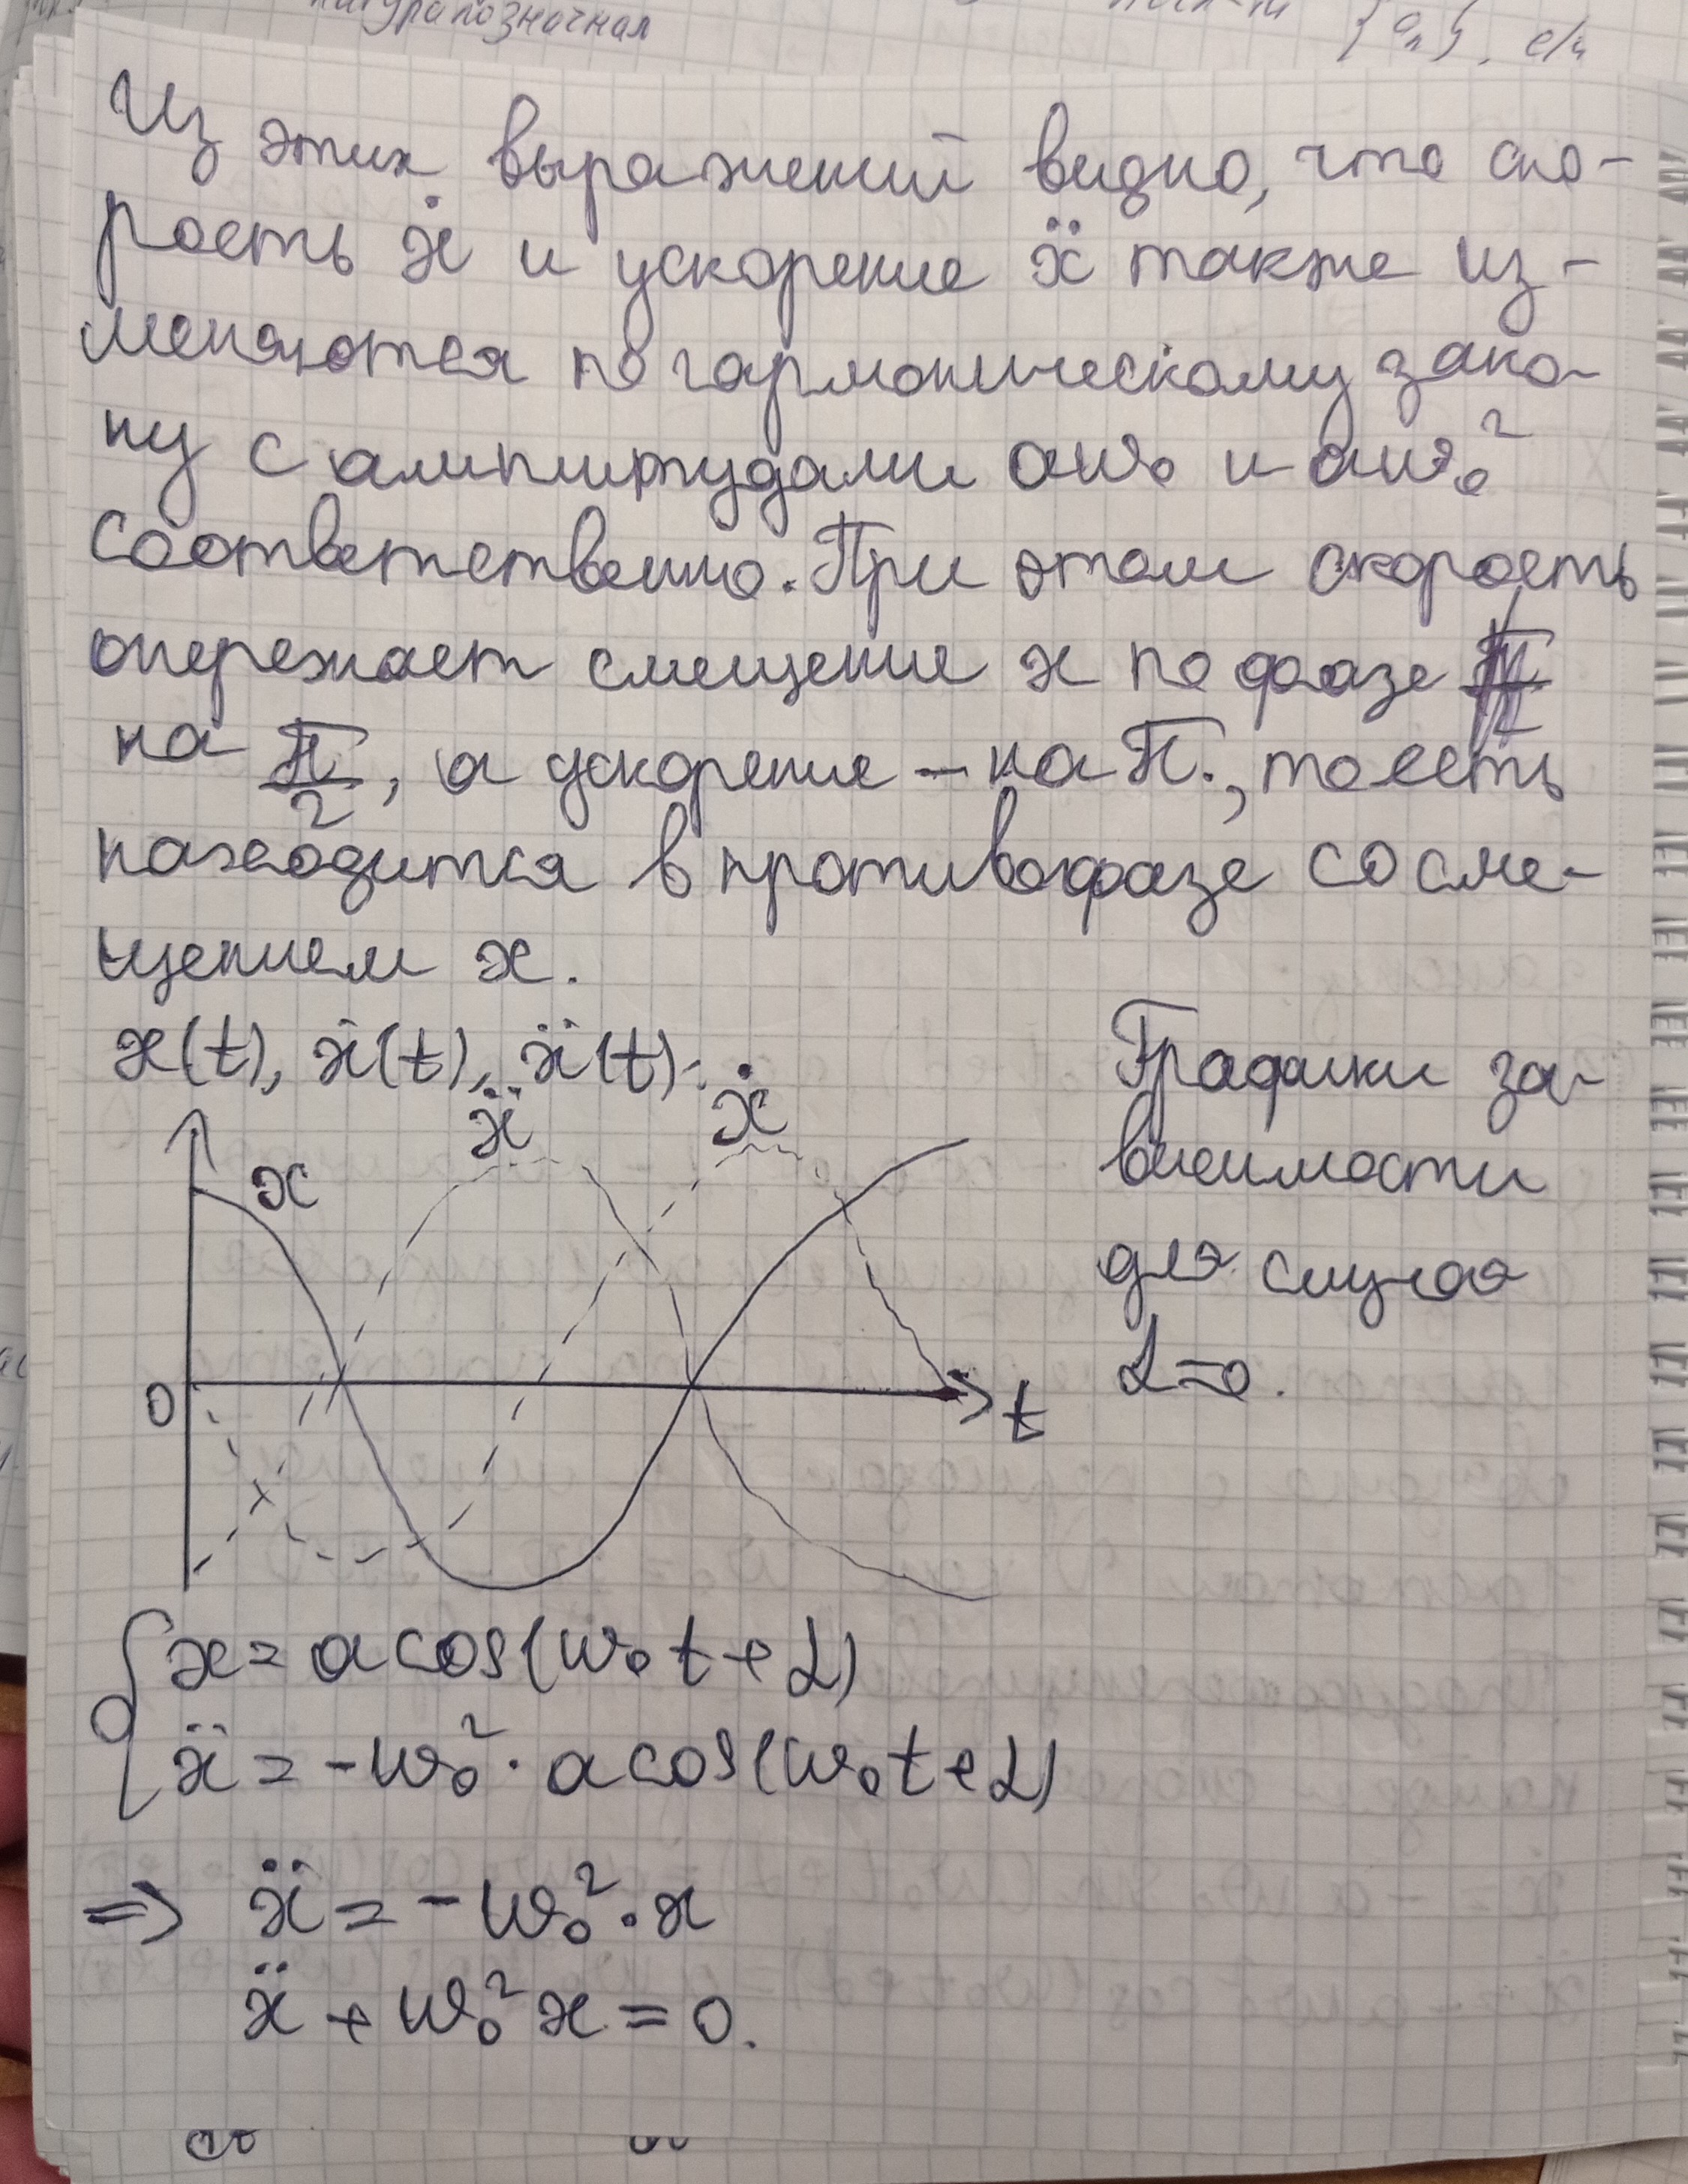 натуральнозначная
{aₙ}, е/и
Из этих выражений видно, что ско-
рость ẋ и ускорение ẍ также из-
меняются по гармоническому зако-
ну с амплитудами aw₀ и aw₀²
соответственно. При этом скорость
опережает смещение x по фазе
на π/2, а ускорение – на π., то есть
находится в противофазе со сме-
щением x.
x(t), ẋ(t), ẍ(t).
ẍ ẋ
x
0
t
Графики за-
висимости
для случая
α=0.
x = a cos(w₀t+α)
ẍ = -w₀² · a cos(w₀t+α)
=> ẍ = -w₀² · x
ẍ + w₀²x = 0.